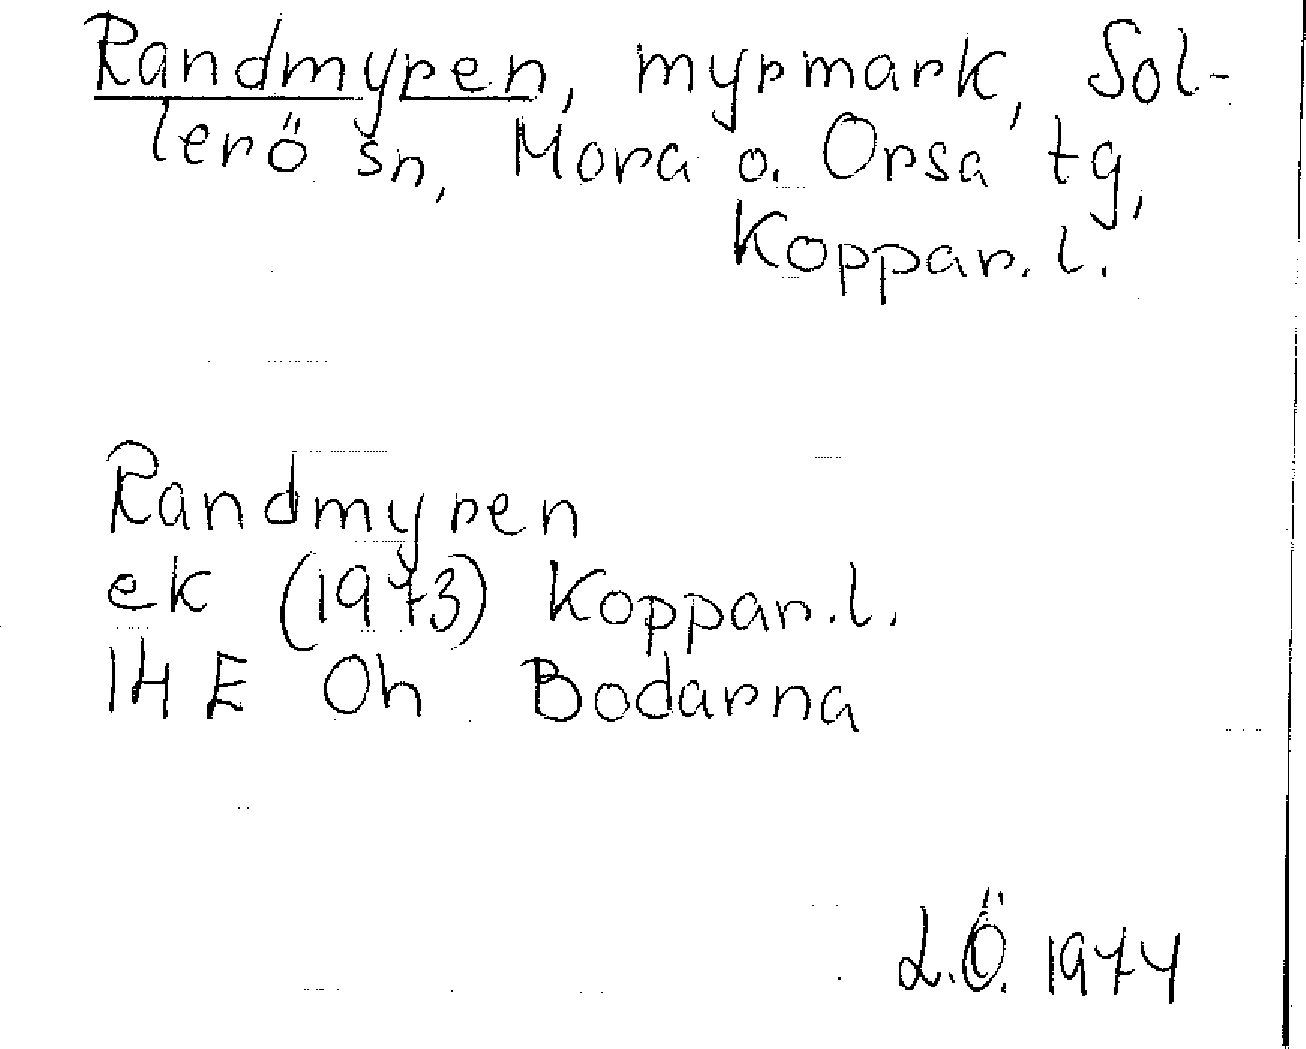 Randmyren, myrmark, Sol-
lerö sn, Mora o. Orsa tg,
Koppar. l.
Randmyren
ek (1973) Koppar. l.
14 E 0h Bodarna
L.Ö. 1974